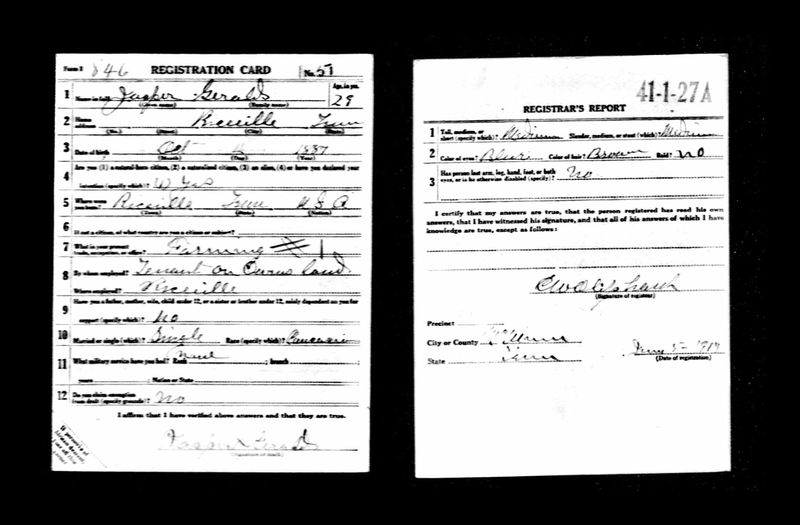 Form 1 846 REGISTRATION CARD No. 57
1 Name in full Jasper Geralds Age, in yrs. 29
(Given name) (Family name)
2 Home address Riceville Tenn
(No.) (Street) (City) (State)
3 Date of birth Oct 1887
(Month) (Day) (Year)
4 Are you (1) a natural-born citizen, (2) a naturalized citizen, (3) an alien, (4) or have you declared your
intention (specify which)? Yes
5 Where were you born? Riceville Tenn U S A
(Town) (State) (Nation)
6 If not a citizen, of what country are you a citizen or subject?
7 What is your present trade, occupation, or office? Farming 1
8 By whom employed? Tenant on Land
Where employed? Riceville
9 Have you a father, mother, wife, child under 12, or a sister or brother under 12, solely dependent on you for
support (specify which)? No
10 Married or single (which)? Single Race (specify which)? Caucasian
11 What military service have you had? Rank None ; branch
years ; Nation or State
12 Do you claim exemption from draft (specify grounds)? No
I affirm that I have verified above answers and that they are true.
Jasper Geralds
(Signature or mark)
If person is of African descent, tear off this corner
41-1-27A
REGISTRAR'S REPORT
1 Tall, medium, or short (specify which)? Medium Slender, medium, or stout (which)? Medium
2 Color of eyes? Blue Color of hair? Brown Bald? No
3 Has person lost arm, leg, hand, foot, or both eyes, or is he otherwise disabled (specify)? No
I certify that my answers are true, that the person registered has read his own
answers, that I have witnessed his signature, and that all of his answers of which I have
knowledge are true, except as follows:
(Signature of registrar)
Precinct
City or County McMinn
State Tenn June 5 - 1917
(Date of registration)